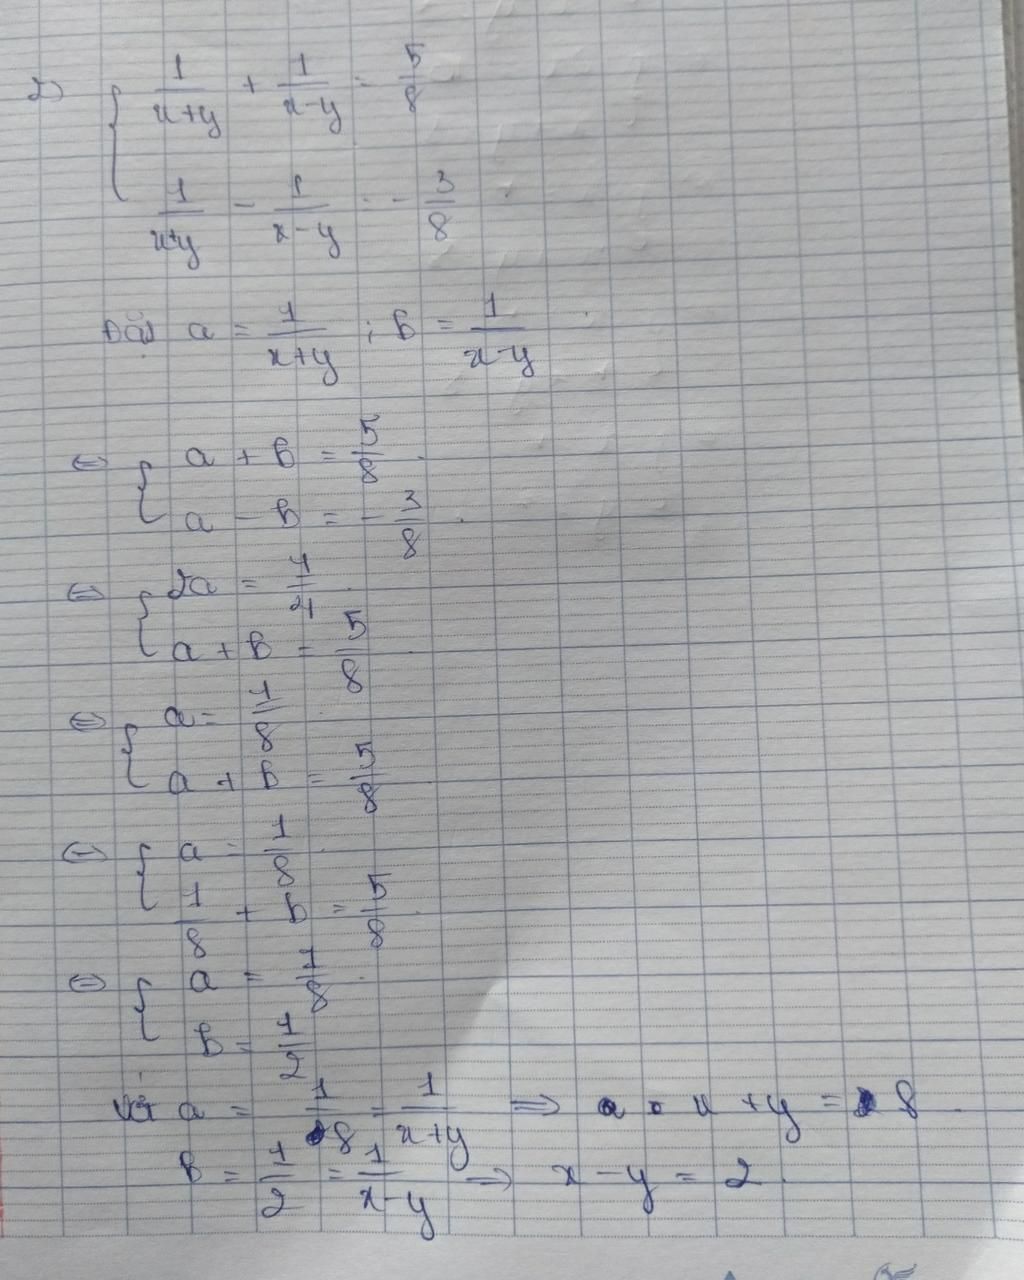 2) { 1/(x+y) + 1/(x-y) = 5/8
1/(x+y) - 1/(x-y) = - 3/8
Đặt a = 1/(x+y) ; b = 1/(x-y)
⇔ { a + b = 5/8
a - b = - 3/8
⇔ { 2a = 1/4
a + b = 5/8
⇔ { a = 1/8
a + b = 5/8
⇔ { a = 1/8
1/8 + b = 5/8
⇔ { a = 1/8
b = 1/2
Với a = 1/8 = 1/(x+y) ⇒ x + y = 8
b = 1/2 = 1/(x-y) ⇒ x - y = 2